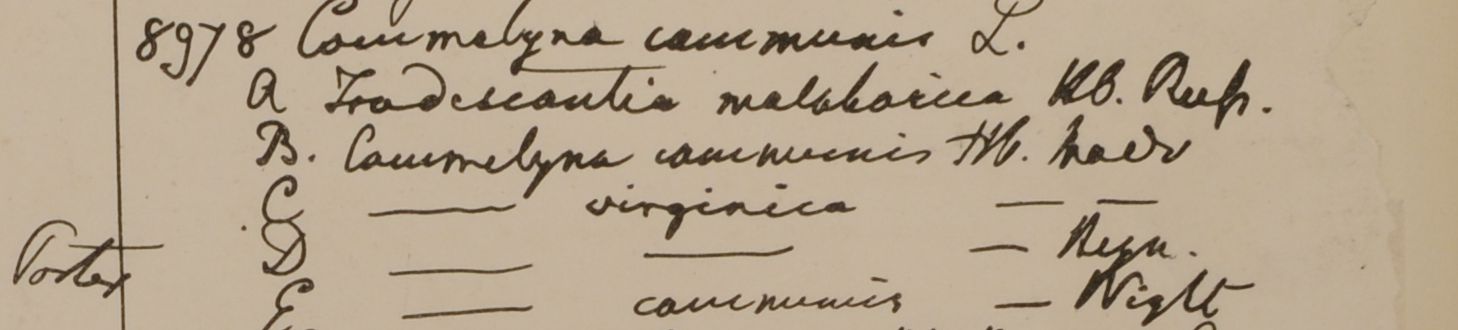 8978 Commelyna communis L.
A Tradescantia malabarica Hb. Russ.
B. Commelyna communis Hb. Madr
C —— virginica — —
D —— —— — Heyn.
Porter
E —— communis — Wight